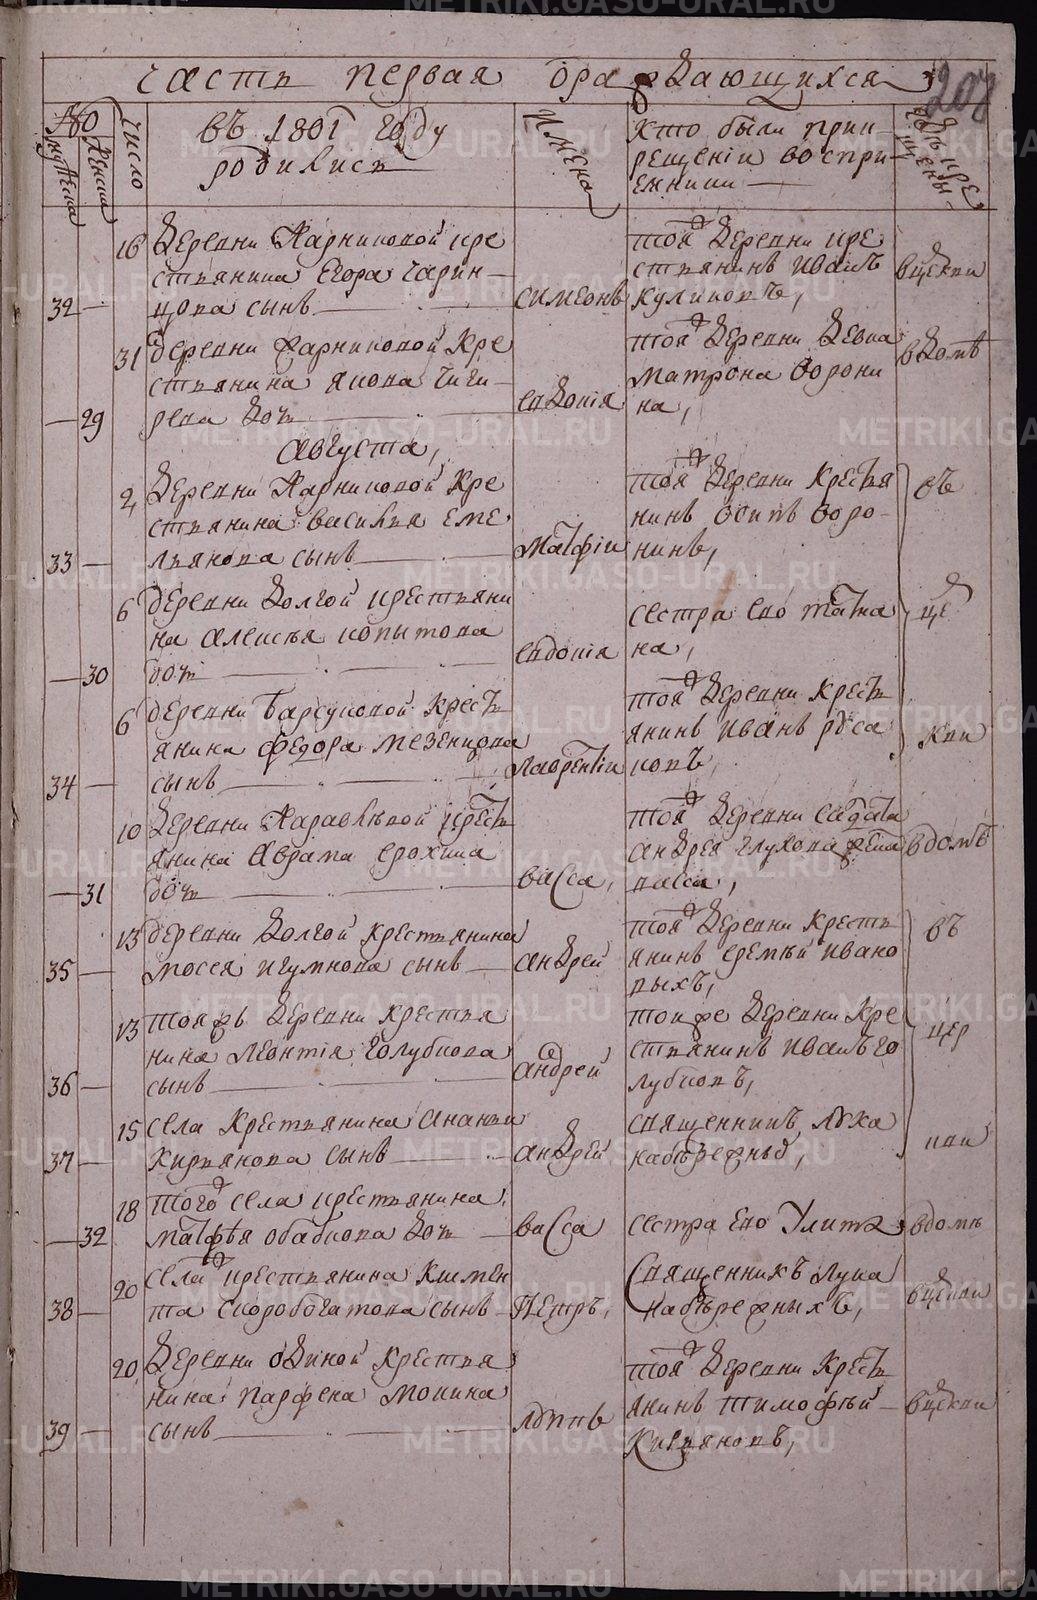 часть первая ораждающихся
207
№
мужеска
женска
число
въ 1801 году
родились
имена
кто были при
крещении воспри
емники
где кре
щены
16 деревни Харниковой кре
стьянина Егора чарин
32 — цова сынъ
симеонъ
тояж деревни кре
стьянинъ иванъ
куликовъ,
вцеркви
31 деревни харниковой кре
стьянина якова чиги
— 29 рева дочь
евдокія
тояж деревни девка
матрона ворони
на,
вдомѣ
августа,
2 деревни Харниковой кре
стьянина василья еме
33 — льянова сынъ
матфій
тояж деревни крестья
нинъ осипъ воро
нинъ,
въ
6 деревни долгой крестьяни
на алексея копытова
— 30 дочь
евдокія
сестра ево татиа
на,
це
6 деревни Барсуковой кресть
янина федора мезенцова
34 — сынъ
лаврентій
тояж деревни кресть
янинъ иванъ руса
ковъ,
ркви
10 деревни Журавлевой кресть
янина аврама ерохина
— 31 дочь
васса,
тояж деревни салдата
андрея глухова жена
васса,
вдомѣ
13 деревни долгой крестьянина
35 — мосея игумнова сынъ
андрей
тояж деревни кресть
янинъ еремѣй ивано
выхъ,
въ
13 тояжъ деревни крестья
нина леонтія голубцова
36 — сынъ
андрей
тоижe деревни кре
стьянинъ иванъ го
лубцовъ,
цер
15 села крестьянина анании
37 — кирьянова сынъ
андрей
священникъ лука
набережныхъ,
кви
18 тогож села крестьянина
— 32 матфѣя обабкова дочь
васса
сестра ево улита
вдомѣ
20 селаж крестьянина климен
38 — та скоробогатова сынъ
петръ,
Священникъ лука
набѣрежныхъ,
вцеркви
20 деревни одиной крестья
нина парфена мокина
39 — сынъ
луппъ
тояж деревни кресть
янинъ тимофѣй
кирьяновъ,
вцеркви
METRIKI.GASO-URAL.RU